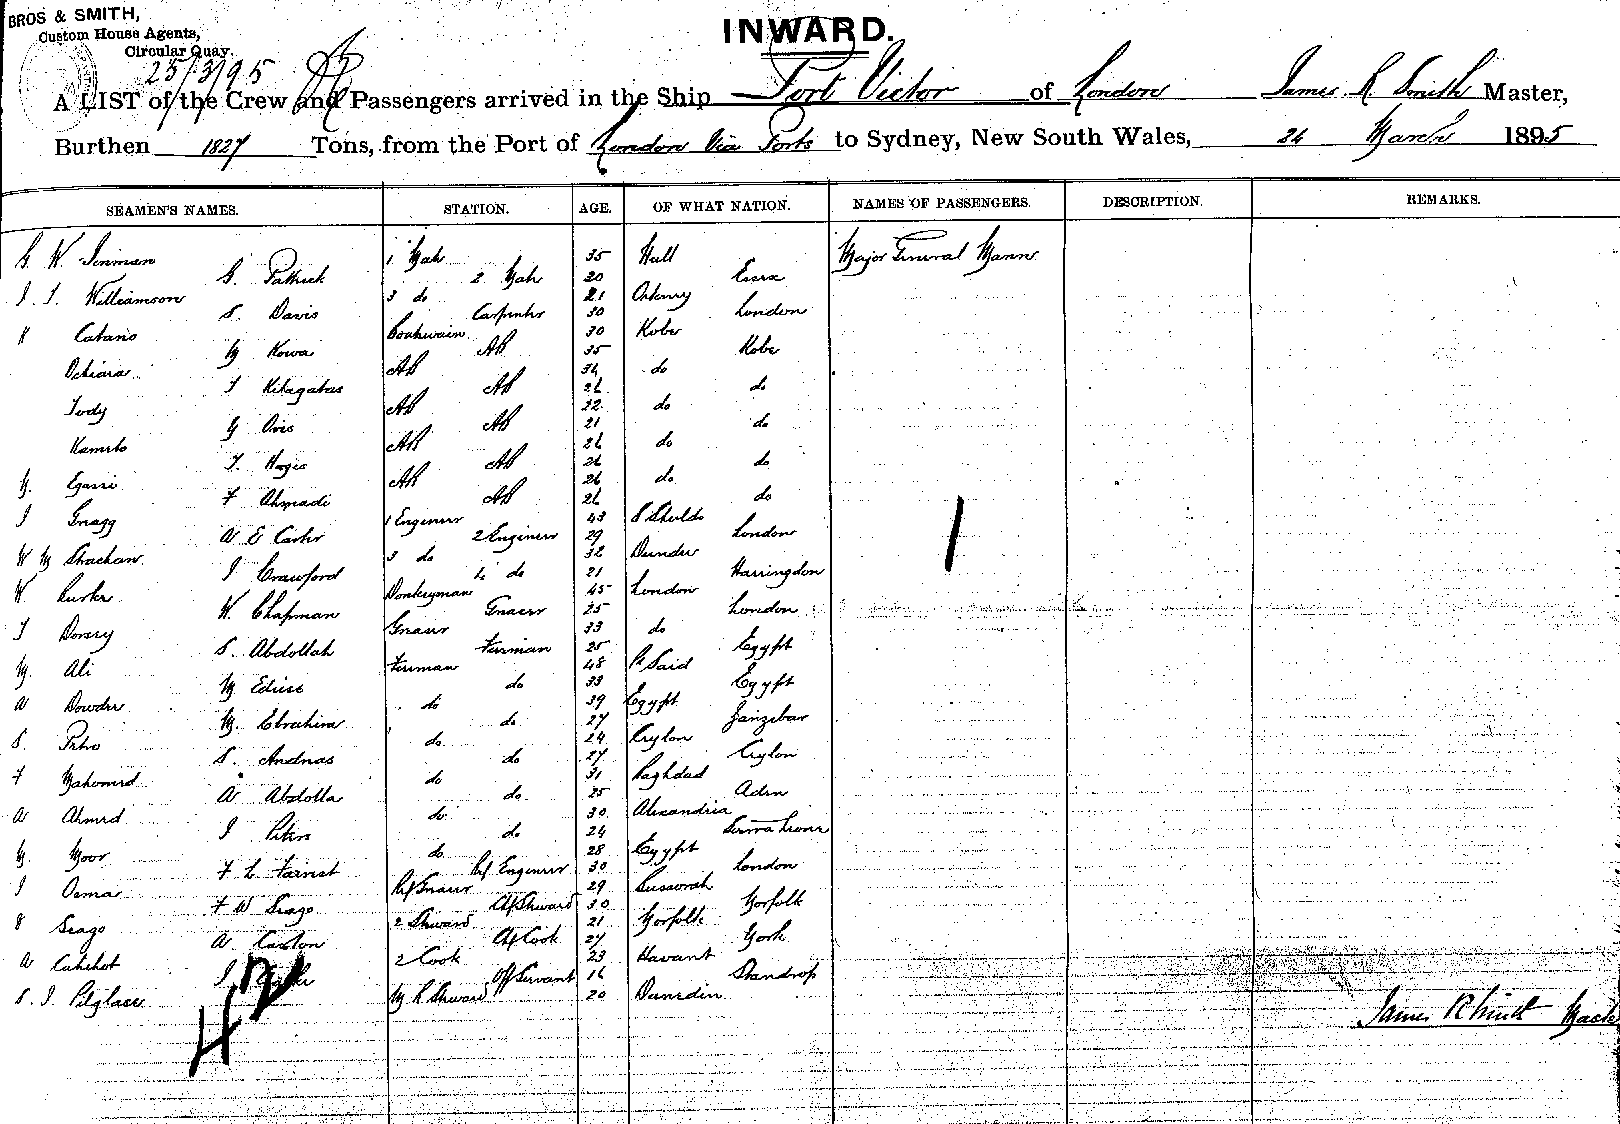 BROS & SMITH,
Custom House Agents,
Circular Quay.
25/3/95
INWARD.
A LIST of the Crew and Passengers arrived in the Ship Port Victor of London James R Smith Master,
Burthen 1827 Tons, from the Port of London Via Ports to Sydney, New South Wales, 24 March 1895
SEAMEN'S NAMES. STATION. AGE. OF WHAT NATION. NAMES OF PASSENGERS. DESCRIPTION. REMARKS.
G. W. Inman 1 Mate 35 Hull Major General Mann
G. Pattrick 2 Mate 20 Essex
J. J. Williamson 3 do 21 Orkney
S. Davis Carpenter 30 London
K Catano Boatswain 30 Kobe
M Kowa AB 35 Kobe
Ochiara AB 34 do
T Kitagatas AB 26 do
Tody AB 22 do
G Oris AB 21 do
Kamito AB 26 do
T. Hogis AB 26 do
M. Egassi AB 26 do
F Ahmadi AB 26 do
J Gragg 1 Engineer 43 S Shields
W E Carter 2 Engineer 29 London
W M Strachan 3 do 32 Dundee
J Crawford 4 do 21 Harringdon
W Donkeyman 45 London
W. Chapman Greaser 25 London
J Dorsey Greaser 33 do
S. Abdollah Fireman 25 Egypt
M. Ali Fireman 48 P Said
M Edries do 33 Egypt
A Dowder do 39 Egypt
M. Ebrahim do 27 Zanzibar
S. Petro do 24 Ceylon
S. Andreas do 27 Ceylon
F Mahomed do 31 Baghdad
A Abdolla do 25 Aden
A Ahmed do 30 Alexandria
J Peters do 24 Sierra Leone
M. Moor do 28 Egypt
F L Farrest Rf Engineer 30 London
J Osmar Rf Greaser 29
F W Seago Chf Steward 30 Norfolk
S Seago 2 Steward 21 Norfolk
A. Caxton Chf Cook 27 York
A Catchet 2 Cook 23 Havant
J Off Servant 16 Standrop
S. J. Pilglase M R Steward 20 Dunedin
James R Smith Master